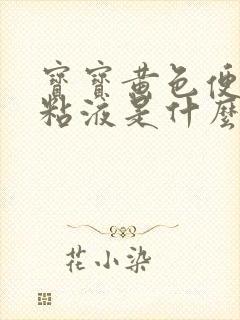 寶寶黃色便
粘液是什麼
花小染